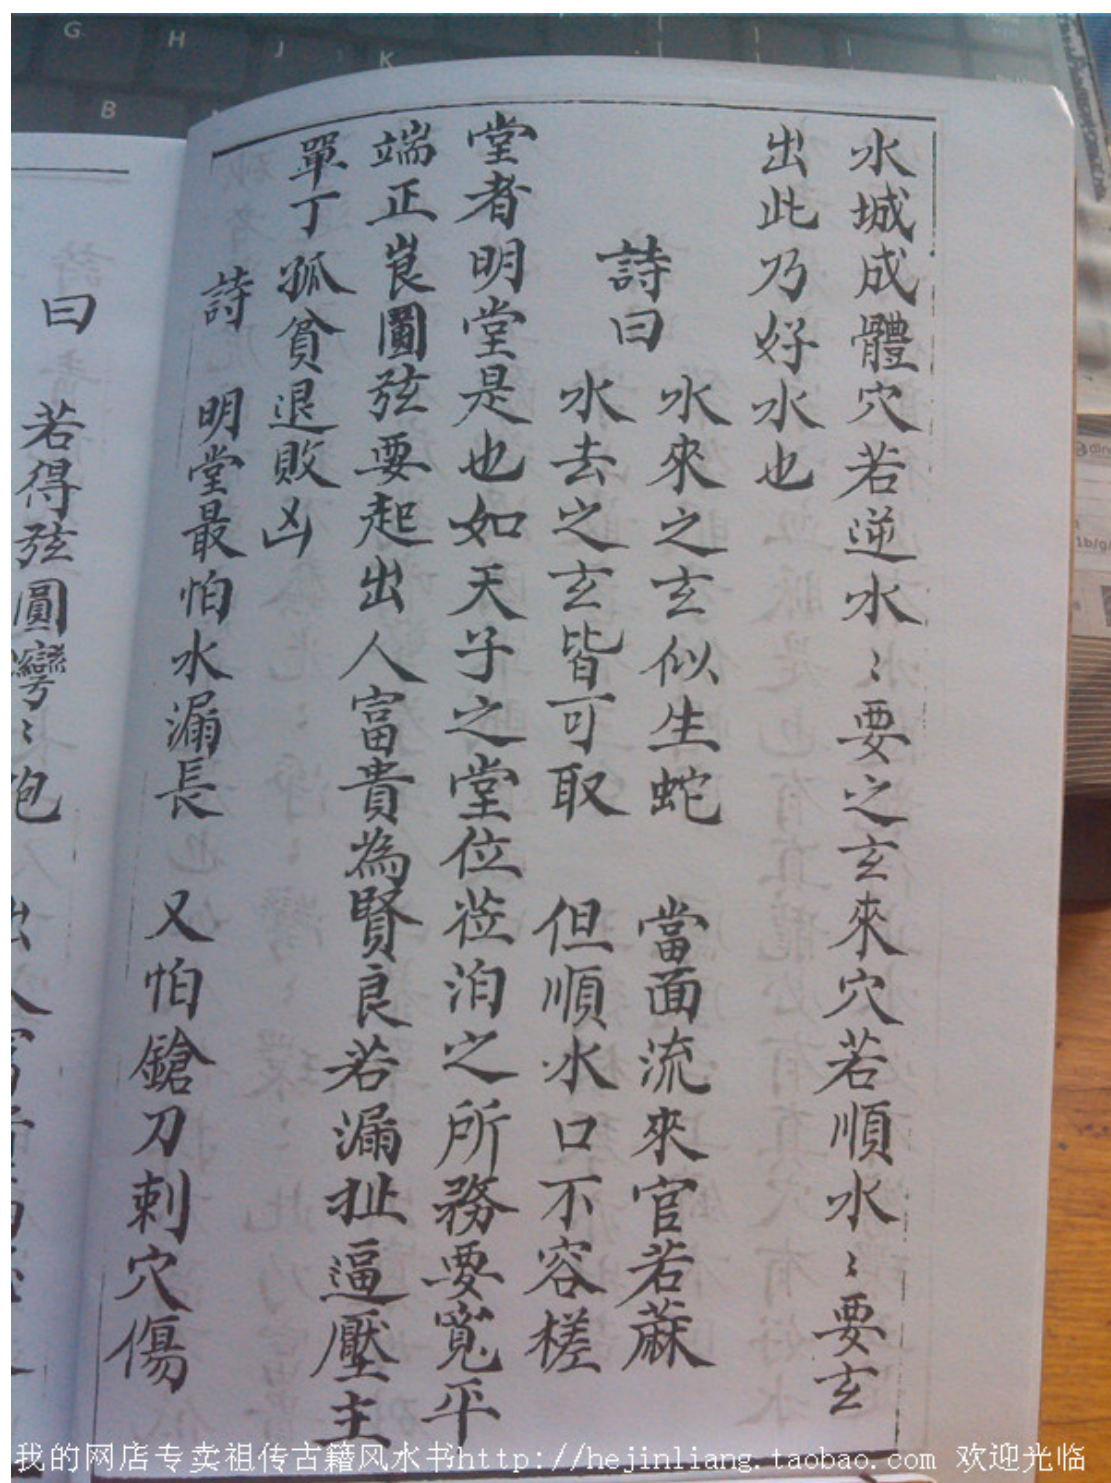 水城成體穴若逆水〻要之玄來穴若順水〻要玄
出此乃好水也
詩曰
水來之玄似生蛇 當面流來官若蔴
水去之玄皆可取 但順水口不容槎
堂者明堂是也如天子之堂位蒞泊之所務要寬平
端正峎圓弦要起出人富貴為賢良若漏扯逼壓主
單丁孤貧退敗凶
詩 明堂最怕水漏長 又怕鎗刀刺穴傷
曰 若得弦圓彎〻抱 出人富貴
我的网店专卖祖传古籍风水书http://hejinliang.taobao.com 欢迎光临
G
H
J
K
B
1b/g/